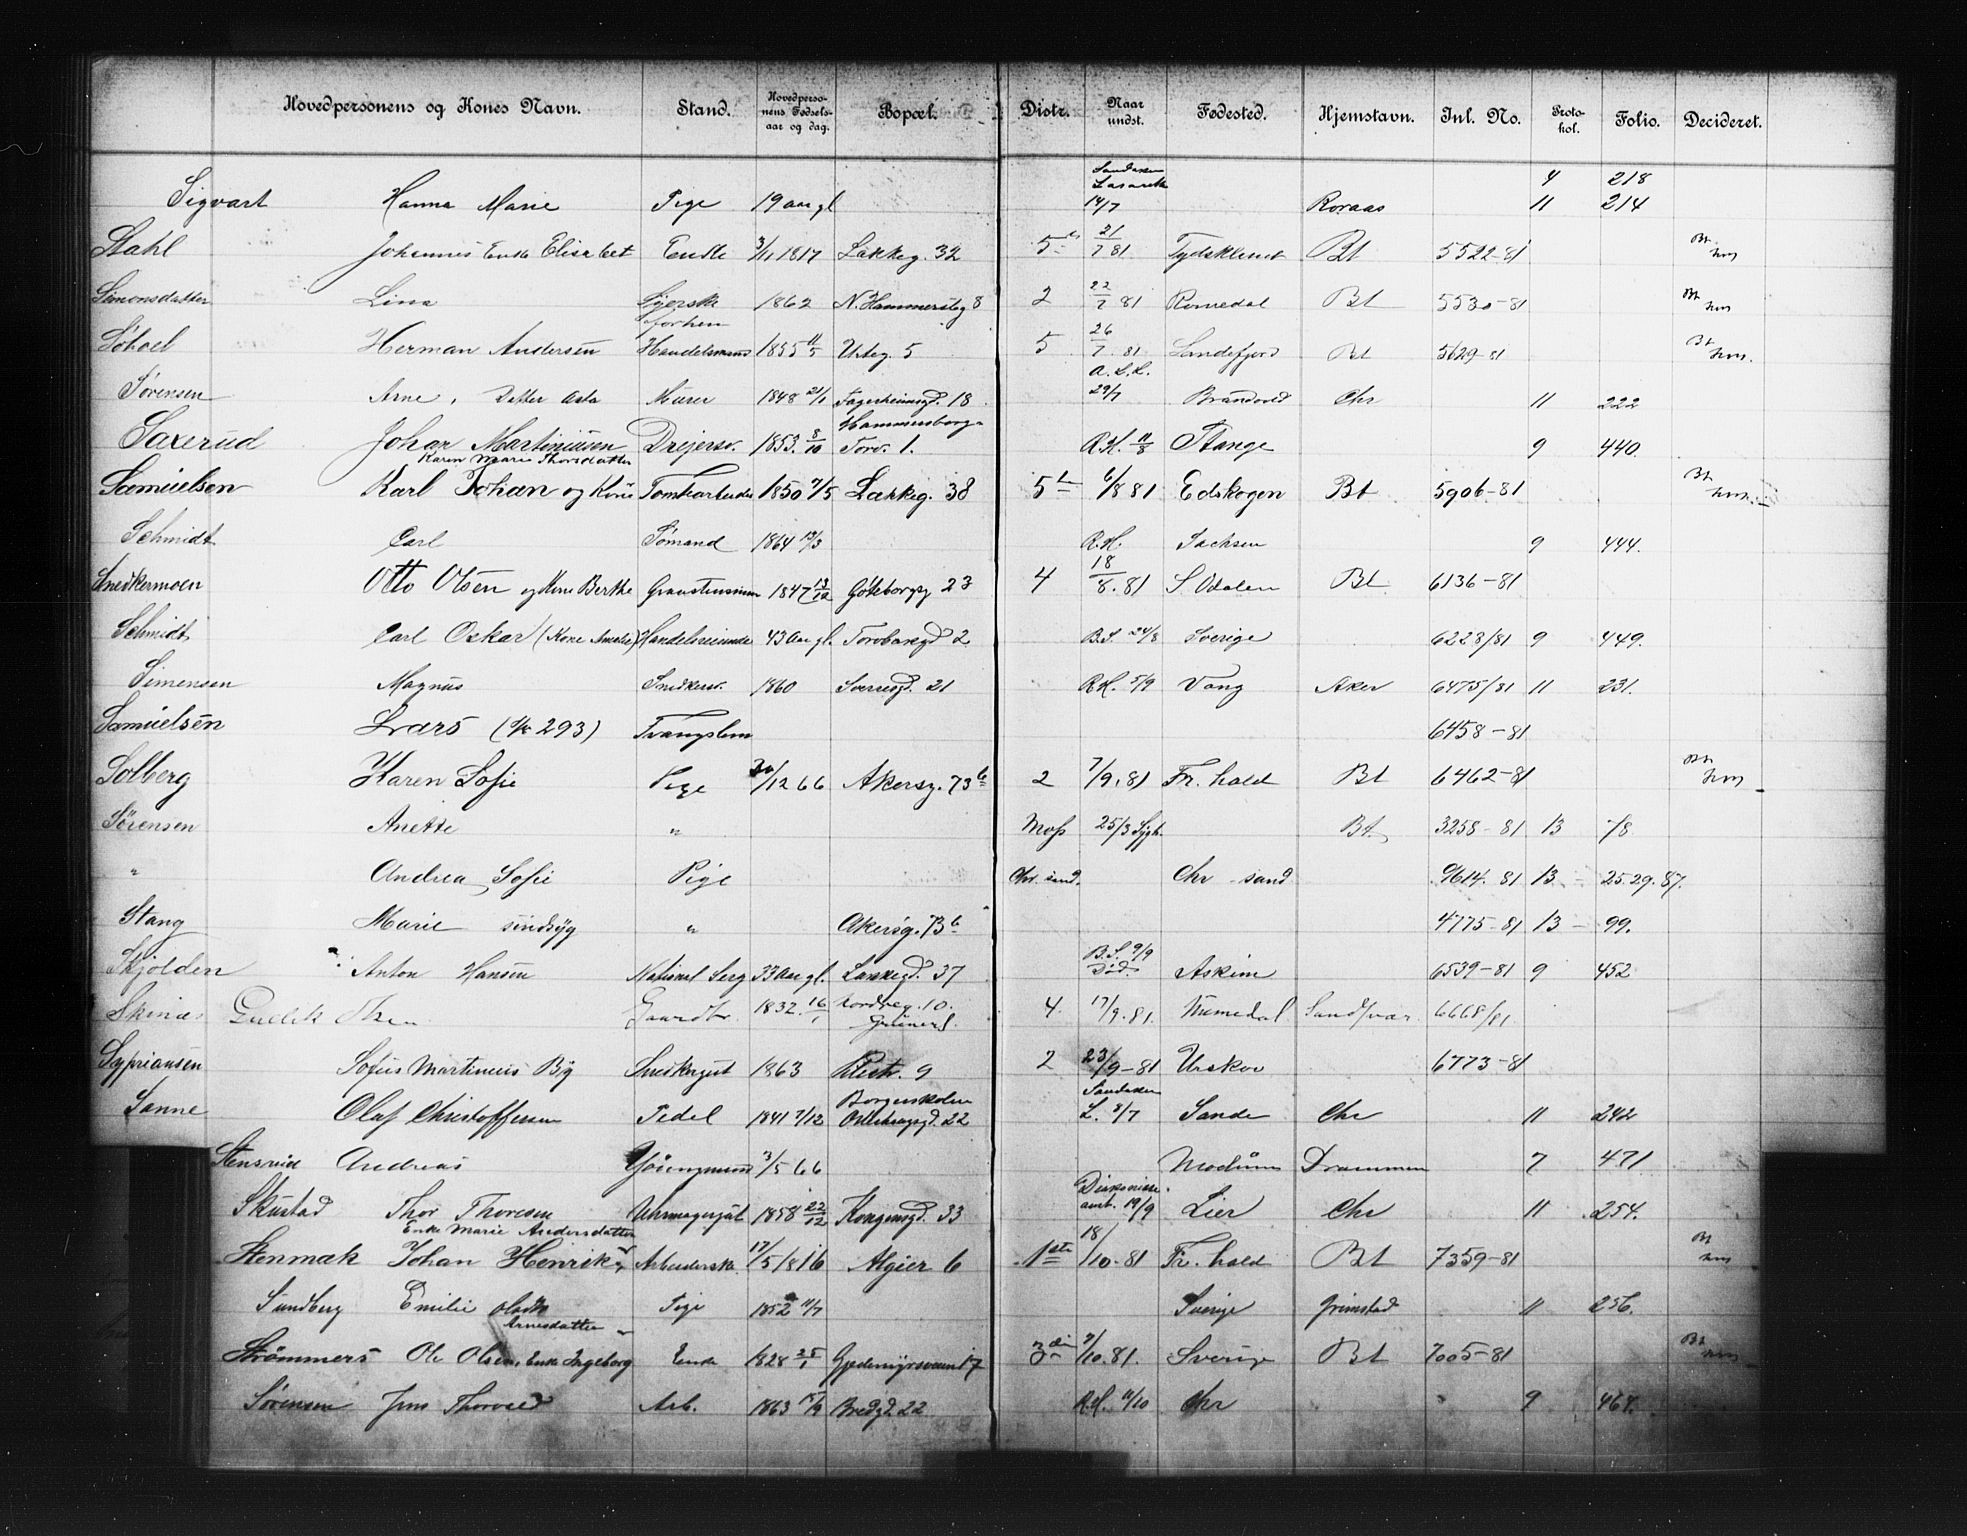 Hovedpersonens og Kones Navn. Stand. Hovedperso-nens Fødsels-aar og dag. Bopæl. Distr. Naar undst. Fødested. Hjemstavn. Inl. No. Proto-kol. Folio. Decideret.
Sigvart Hanna Marie Pige 19 aar gl 14/7 Roraas 4 218 11 214
Stahl Johannes Enke Elisabet Enke 3/1 1817 Lakkeg. 32 5te 21/7 81 Tydskland Bt 5522-81 Bt
Simonsdatter Lina Syerske 1862 N. Hammersbg 8 2 22/7 81 Romedal Bt 5530-81 Bt
Herman Andersen forhen Handelsmand 1855 11/5 Urteg. 5 5 26/7 81 Sandefjord Bt 5629-81 Bt
Sørensen Arne, Datter Asta Murer 1848 21/1 Fagerheimsgd. 18 A.L.L. 29/7 Brandvold Chr 11 222
Saxerud Johan Martiniusen Drejersv. 1853 8/10 Hammersborg Torv. 1. R.H. 11/8 Stange 9 440.
Karen Marie Thorsdatter
Samuelsen Karl Johan og Kone Tomtearbeider 1850 7/5 Lakkeg. 38 5te 6/8 81 Edskogen Bt 5906-81 Bt
Schmidt Carl Sømand 1864 13/3 R.H. Sachsen 9 444.
Snedkermoen Otto Olsen og Kone Berthe Graastensmurer 1847 13/12 Göteborgg 23 4 18/8. 81 S Odalen Bt 6136-81
Schmidt Carl Oskar (Kone Amalie) Handelsreisende 43 Aar gl. Torvbaksgd 2 B.S. 24/8 Sverige 6223/81 9 449.
Simensen Magnus Snedkersv. 1860 Sverresgd. 21 R.H. 5/9 Vang Aker 6475/81 11 231.
Samuelsen Lars (/k 293) Tvangslem 6458-81
Solberg Karen Sofie Pige 30/12 66 Akersg. 73b 2 7/9. 81 Fr. hald Bt 6462-81 Bt
Sørensen Anette " Moss 25/3 Sygh. Bt 3258-81 13 78
" Andrea Sofie Pige Chr. sand. Chr sand 9614. 81 13 - 25.29.87.
Stang Marie sindsyg " Akersg. 73b 4775-81 13 - 99.
Skjolden Anton Hansen National Serg 33 Aar gl. Lakkegd. 37 B.S. 9/9 Død Askim 6539-81 9 452
Skinæs Gullik Olsen Gaardbr. 1832. 16/1 Nordreg. 10. Grünerl. 4. 17/9. 81. Numedal Sandsvær 6668/81
Sypriansen Sofus Martinius By Snedkersvt 1863 Pilestr. 9 2 23/9-81 Urskov 6773-81
Sanne Olaf Christoffersen Pedel 1841 7/12 22 L. 8/7 Sande Chr 11 242
Stensrud Andreas 3/5 66 Modum Drammen 7 471
Skustad Thor Thoresen Uhrmagersvt 1858 22/12 Kongensgd. 33 Diakonisse anst. 19/9 Lier Chr 11 254.
Enke Marie Andersdatter
Stenmak Johan Henrik Arbeiderske 17/5 1816 Algier 6 1ste 18/10-81 Fr. hald Bt 7359-81 Bt
Sundberg Emilie Pige 1852 11/7 Sverige Grimstad 11 256.
Arnesdatter
Strömmers Ole Olsen, Enke Ingeborg Enke 1828 25/1 Gjedemyrsveien 17 3die 7/10. 81. Sverige Bt 7005-81 Bt
Sørensen Jens Thorvald Arb. 1863 15/9 Bredgd. 22 R.H. 11/10 Chr 9 464.